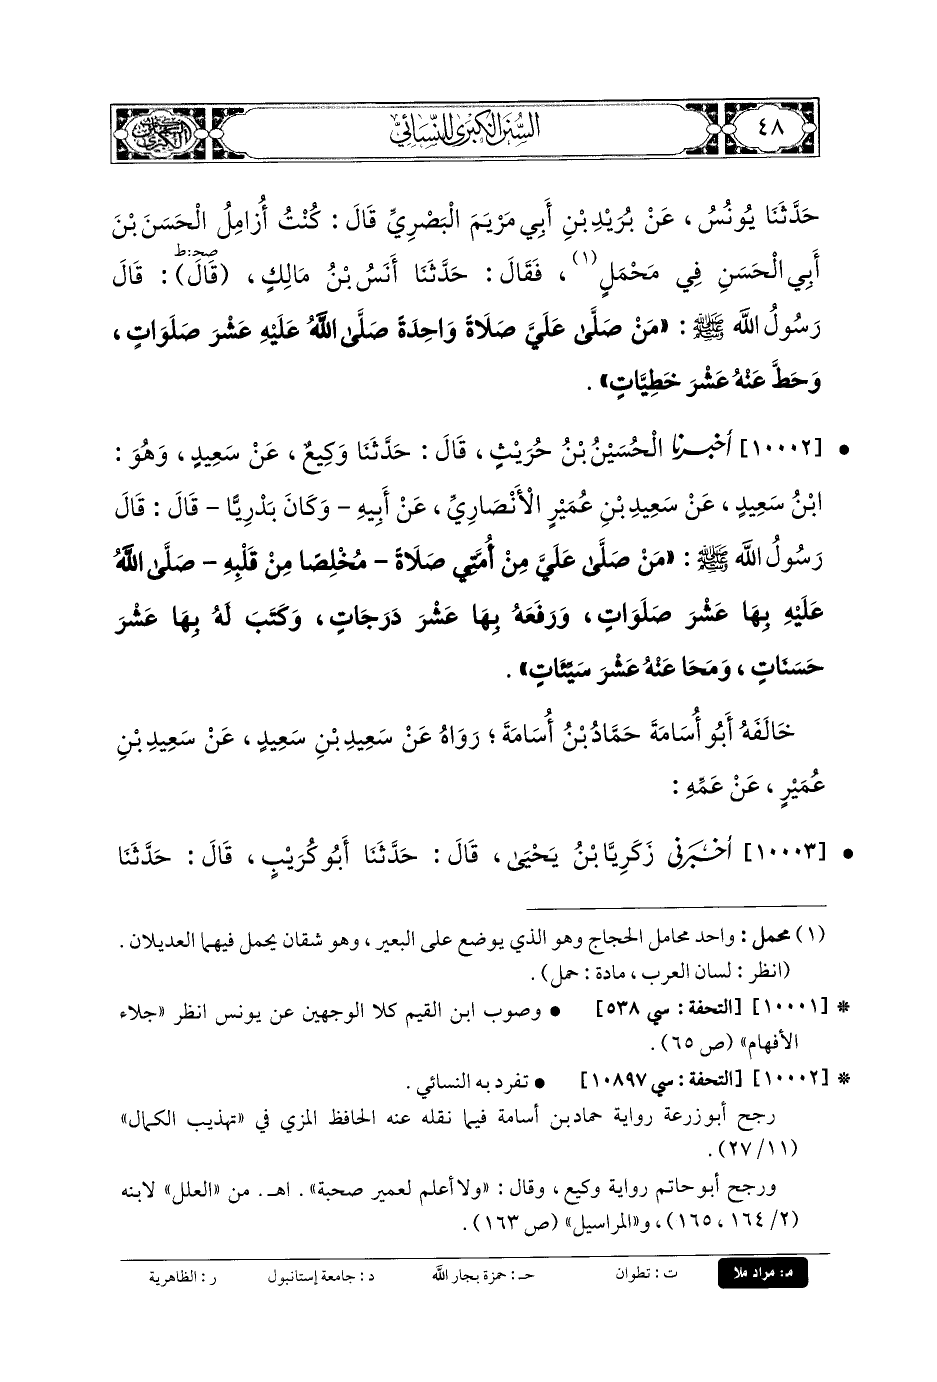 ٤٨
السنن الكبرى للنسائي
حَدَّثَنَا يُونُسُ ، عَنْ بُرَيْدِ بْنِ أَبِي مَرْيَمَ الْبَصْرِيِّ قَالَ : كُنْتُ أُزَامِلُ الْحَسَنَ بْنَ
أَبِي الْحَسَنِ فِي مَحْمَلٍ(١) ، فَقَالَ : حَدَّثَنَا أَنَسُ بْنُ مَالِكٍ ، (قَالَ) : قَالَ
رَسُولُ اللَّه ﷺ : «مَنْ صَلَّىٰ عَلَيَّ صَلَاةً وَاحِدَةً صَلَّى اللَّهُ عَلَيْهِ عَشْرَ صَلَوَاتٍ ،
وَحَطَّ عَنْهُ عَشْرَ خَطِيَّاتٍ» .
• [١٠٠٠٢] أَخْبَرَنَا الْحُسَيْنُ بْنُ حُرَيْثٍ ، قَالَ : حَدَّثَنَا وَكِيعٌ ، عَنْ سَعِيدٍ ، وَهُوَ :
ابْنُ سَعِيدٍ ، عَنْ سَعِيدِ بْنِ عُمَيْرٍ الْأَنْصَارِيِّ ، عَنْ أَبِيهِ - وَكَانَ بَدْرِيًّا - قَالَ : قَالَ
رَسُولُ اللَّه ﷺ : «مَنْ صَلَّىٰ عَلَيَّ مِنْ أُمَّتِي صَلَاةً - مُخْلِصًا مِنْ قَلْبِهِ - صَلَّى اللَّهُ
عَلَيْهِ بِهَا عَشْرَ صَلَوَاتٍ ، وَرَفَعَهُ بِهَا عَشْرَ دَرَجَاتٍ ، وَكَتَبَ لَهُ بِهَا عَشْرَ
حَسَنَاتٍ ، وَمَحَا عَنْهُ عَشْرَ سَيِّئَاتٍ» .
خَالَفَهُ أَبُو أُسَامَةَ حَمَّادُ بْنُ أُسَامَةَ ؛ رَوَاهُ عَنْ سَعِيدِ بْنِ سَعِيدٍ ، عَنْ سَعِيدِ بْنِ
عُمَيْرٍ ، عَنْ عَمِّهِ :
• [١٠٠٠٣] أَخْبَرَنِي زَكَرِيَّا بْنُ يَحْيَىٰ ، قَالَ : حَدَّثَنَا أَبُو كُرَيْبٍ ، قَالَ : حَدَّثَنَا
(١) محمل : واحد محامل الحجاج وهو الذي يوضع على البعير ، وهو شقان يحمل فيهما العديلان .
(انظر : لسان العرب ، مادة : حمل) .
* [١٠٠٠١] [التحفة : سي ٥٣٨] • وصوب ابن القيم كلا الوجهين عن يونس انظر «جلاء
الأفهام» (ص ٦٥) .
* [١٠٠٠٢] [التحفة : سي ١٠٨٩٧] • تفرد به النسائي .
رجح أبو زرعة رواية حماد بن أسامة فيما نقله عنه الحافظ المزي في «تهذيب الكمال»
(٢٧/١١) .
ورجح أبو حاتم رواية وكيع ، وقال : «ولا أعلم لعمير صحبة» . اهـ . من «العلل» لابنه
(٢/ ١٦٤ ، ١٦٥) ، و«المراسيل» (ص ١٦٣) .
م : مراد ملا ت : تطوان حـ : حمزة بجار اللَّه د : جامعة إستانبول ر : الظاهرية